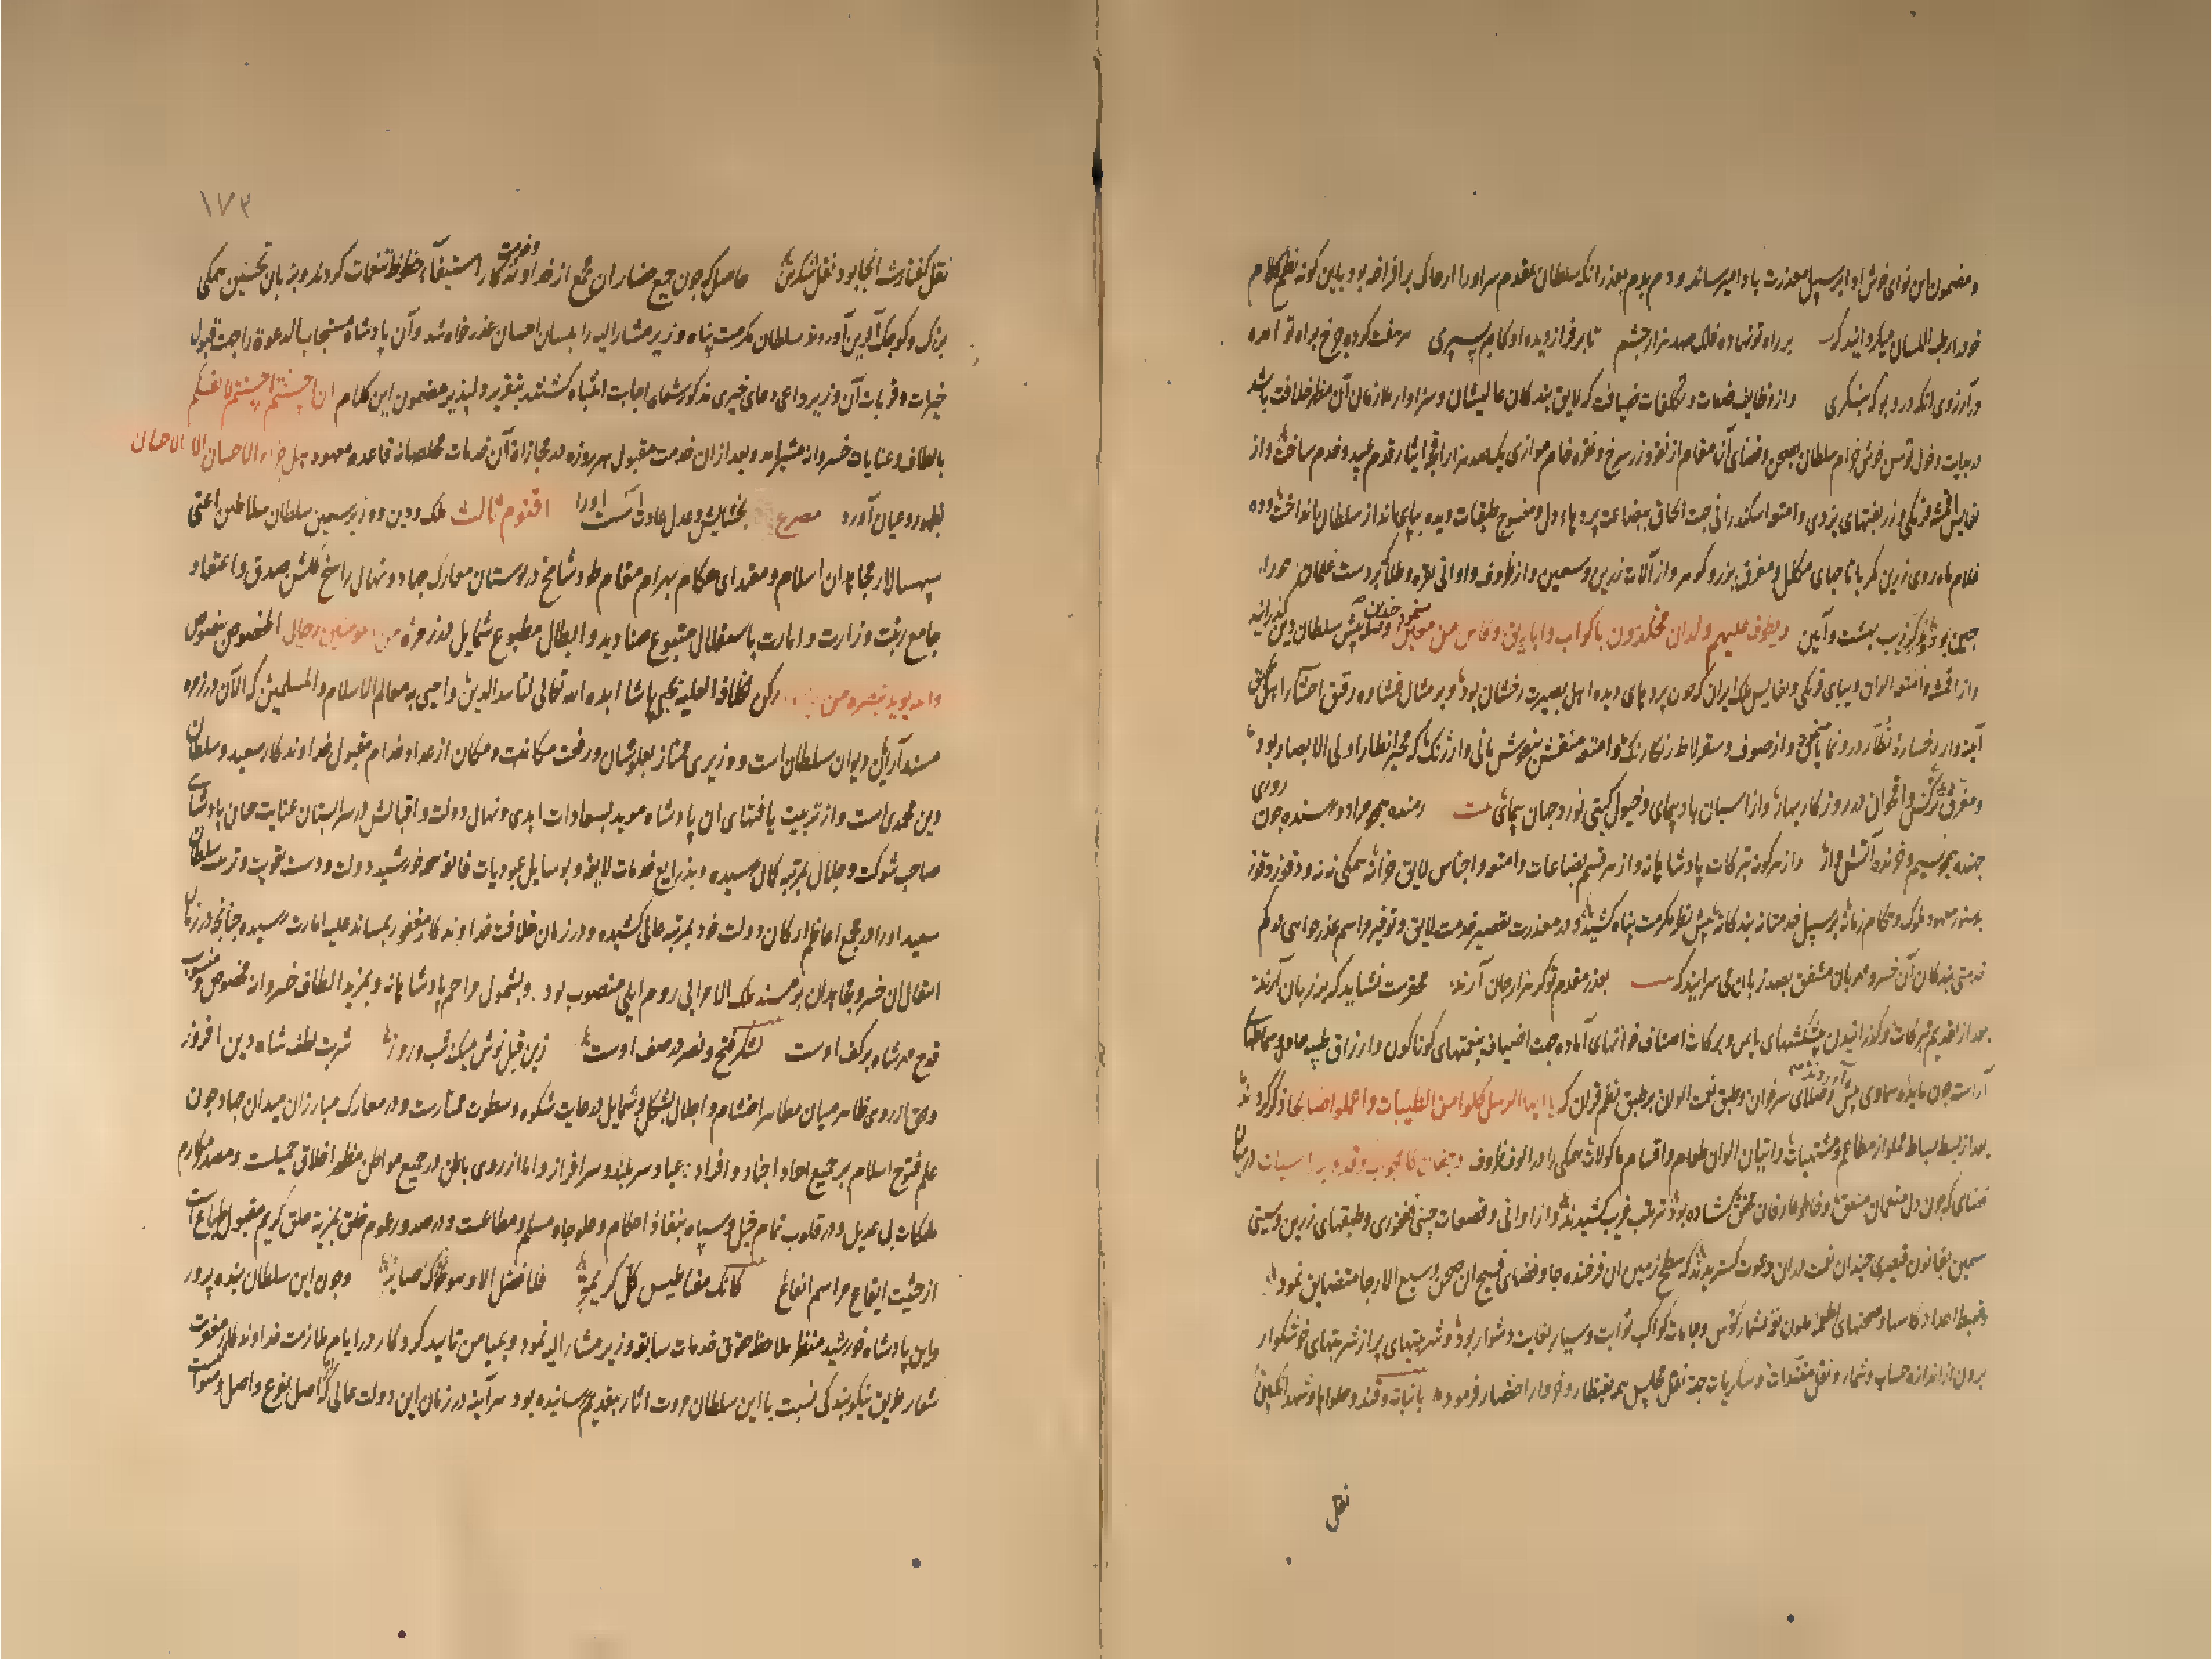 و مضمون این نوای خوش ادا بر سبیل معذرت بادا میرساند و دم بدم بعذر آنکه سلطان مقدم سر او را از خاک برافراخته بود باین گونه نظم کلام
خود را رطب اللسان میگردانید که بر راه تو نهاده فلک صد هزار چشم تا بر فراز دیده او گام بسپری هر هفت کرده چرخ براه تو آمده
در آرزوی آنکه درو بو که بنگری و از وظایف خدمات و تکلفات ضیافت که لایق بندگان عالیشان و سزاوار ملازمان آن مظهر خلافت باشد
در بدایت دخول توسن خوش خرام سلطان بصحن و فضای آن مقام از نقود زر سرخ و نقره خام موازی یکصد هزار آقچه ایثار قدوم عبید و خدم ساخت و از
نفایس اقمشه فرنگی و زربفتهای یزدی و امتعه اسکندرانی جهت الحاق بضاعت پرده‌ای دل و منسوج طبقات دیده بپای انداز سلطان انداخت و ده
غلام ماه روی زرین کمر با تاجهای مکلل و مغرق بزر و گوهر و از آلات زرین و سیمین و از ظروف و اوانی نقره و طلا که بر دست غلمان حورا
جبین بود که بزیب بهشت و آیین و یطوف علیهم ولدان مخلدون باکواب و اباریق و کاس من معین پیش سلطان دین گذرانید
و از اقمشه و امتعه الوان دیبای فرنگی و نفایس ملک ایران که چون پردهای دیده اهل بصیرت رخشان بود و بر مثال
آینه‌دار رخساره نظار درو نمایان و از صوف و سقرلاط رنگارنگ و امتعه منقش بنقوش مانی و ارژنگ که محیر انظار اولی الابصار بود
و مفرق نرگس و اقحوان در روز کار بهار و از اسبان بادپیمای و خیول گیتی نورد جهان پیمای رونده چو مراد و رسنده چون روزی
جهنده چو نسیم و خورنده آتش‌وار و از هرگونه تبرکات پادشاهانه و از هر قسم بضاعات و امتعه و اجناس لایق خزانه همگی نه نه و دقوز دقوز
بدستور معهود ملوک و حکام زمان بر سبیل خدمتانه بندگانه پیش نظر مکرمت پناه کشید و در معذرت تقصیر خدمت لایق و توفیر مراسم عذرخواهی
خدمتی بندگان آن خسرو مهربان مشفق بصد زبان می‌سرایند که بعذر مقدم تو گر هزار جان آرند محقرست نشاید که بر زبان آرند
بعد از تقدیم تبرکات و گذرانیدن پیشکشهای باین و برکات اصناف خوانهای آماده جهت اضیاف بنعمتهای گوناگون و ارزاق طیب
آراسته چون مایده سماوی پیش آوردند و صلای سرخوان و طبق نعمت الوان بر طبق نظم قرآن که یا ایها الرسل کلوا من الطیبات و اعملوا صالحا ذکر کردند
بعد از بسط بساط مملو از مطاعم و مشتهیات و اتیان الوان طعام و اقسام ماکولات همگی را در الوف ظروف و جفان کالجواب و قدور راسیات در میان
فضای که چون دل منعمان منعم و خاطر عارفان گشاده بود بترتیب غریب کشیدند و از اوانی و قصعات چینی فغفوری و طبقهای زرین و سیمین
سیمین بقانون قیصری چندان نعمت در آن دعوت گستریدند که سطح زمین آن فرخنده جا و فضای فسیح آن صحن وسیع الارجا متضایق نمود
ضبط اعداد کاسها و صحنهای اطعمه ملون چو شمار کؤس و جامات کواکب ثوابت و سیار بغایت دشوار بود و شربتهای پر از شربتهای خوشگوار
برون از اندازه حساب و شمار و نقل مفندات و سکریات جهت نقل مجلس همه بقنطار و خروار احضار فرموده با نبات و قند و حلوا و شهد انگبین
نقل
۱۷۳
نقل گفتارش آنجا بود نقل شکرین حاصل که چون جمیع حضار آن مجمع از خداوندگار و خدمت را استیفاء حظوظ تنعمات کردند و بزبان تحسین همگی
بزرگ و کوچک آفرین آوردند سلطان مکرمت پناه وزیر مشار الیه را بلسان احسان عذرخواه شد و آن پادشاه مستجاب الدعوة را جهت قبول
خیرات و قربات آن وزیر داعی دعای خیری مذکور شفاه اجابت انتباه گشتند بتقریر دلپذیر مضمون این کلام ان احسنتم احسنتم لانفسکم
بالطاف و عنایات خسروانه مشیر آمد و بعد از آن خدمت مقبول بهر روزه در مجازاة آن خدمات مخلصانه قاعده معهود هل جزاء الاحسان الا الاحسان
بظهور و عیان آورد مصرع بخشایش و عدل عادت است او را اقنوم ثالث ملک و دین و وزیر سیمین سلطان سلاطین اعنی
سپهسالار مجاهدان اسلام و مقتدای حکام بهرام مقام طود شامخ در بوستان معارک جهاد و نهال راسخ گلشن صدق و اعتقاد
جامع رتبت وزارت و امارت باستقلال متبوع صنادید و ابطال مطبوع شمایل در زمره من المؤمنین رجال المخصوص بنصوص
و الله یؤید بنصره من یشاء رکن الخلافة العلیة یحیی پاشا ایده الله تعالی لتایید الدین و احیی به معالم الاسلام و المسلمین که الآن در زمره
مسند آرای دیوان سلطان است و وزیری ممتاز بعلو شان و رفعت مکانت و مکان از عداد خدام مقبول خداوندگار سعید و سلطان
دین محمدی است و از تربیت یافتهای آن پادشاه مؤید بسعادات ابدی و نهال دولت و اقبالش در سرابستان عنایت جهان پادشاهی
صاحب شوکت و جلال بمرتبه کمال رسیده و بذرایع خدمات لایقه و بوسایل عبودیات فائقه خورشید دولت و دست تقویت و تربیت سلطان
سعید او را در مجمع اعاظم ارکان دولت خود بمرتبه عالی کشیده و در زمان خلافت خداوندگار مغفور بمساند علیه امارت رسیده چنانچه در زمان
انتقال آن خسرو مجاهدان بر مسند ملک الامرایی روم ایلی منصوب بود و بشمول مراحم پادشاهانه و بمزید الطاف خسروانه مخصوص و منسوب
قدح مهر شاه بر کف اوست لشکر فتح و نصر در صف اوست زین قبل نوش میکند شب و روز شربت لطف شاه دین افروز
و حق از روی ظاهر میان مظاهر احتشام و ابطال بشکل و شمایل در غایت شکوه و سطوت ممتازست و در معارک مبارزان میدان جهاد چون
علم فتوح اسلام بر جمیع احاد اجناد و افراد عباد سربلند و سرافراز و اما از روی باطن در جمیع مواطن مظهر اخلاق جمیلست و مصدر مکارم
ملکات بی عدیل و در قلوب تمام خیل و سپاه بنفاذ احکام و علو جاه مسلم و مطاعست و در صدور عموم خلق بمزیت خلق کریم مقبول طباع است
از حیثیت ایقاع مراسم انفاع کانک مغناطیس کل کریمة فلا فضل الا و هو نحوک صایر و چون این سلطان بنده پرور
و این پادشاه خورشید منظر ملاحظه حقوق خدمات سابقه وزیر مشار الیه نمود و بمیامن تایید کردگار در ایام ملازمت خداوندگار مغفرت
شعار طریق نیکو بندگی نسبت با این سلطان مروت آثار بتقدیم رسانیده بود هر آینه در زمان این دولت عالی که اصل فروع و اصل